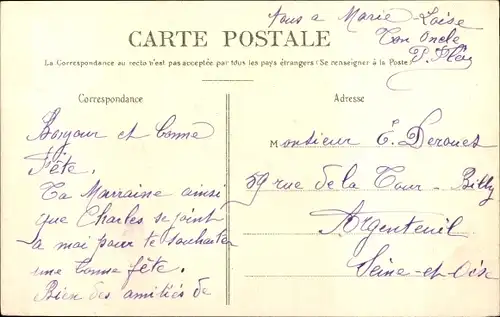 tous a Marie-Loïse
Ton Oncle
CARTE POSTALE
La Correspondance au recto n'est pas acceptée par tous les pays étrangers (Se renseigner à la Poste)
Correspondance
Bonjour et bonne
Fête.
Ta Marraine ainsi
que Charles se joint
a moi pour te souhaiter
une bonne fête.
Bien des amitiés de
Adresse
Monsieur E. Derouet
59 rue de la Tour - Billy
Argenteuil
Seine-et-Oise